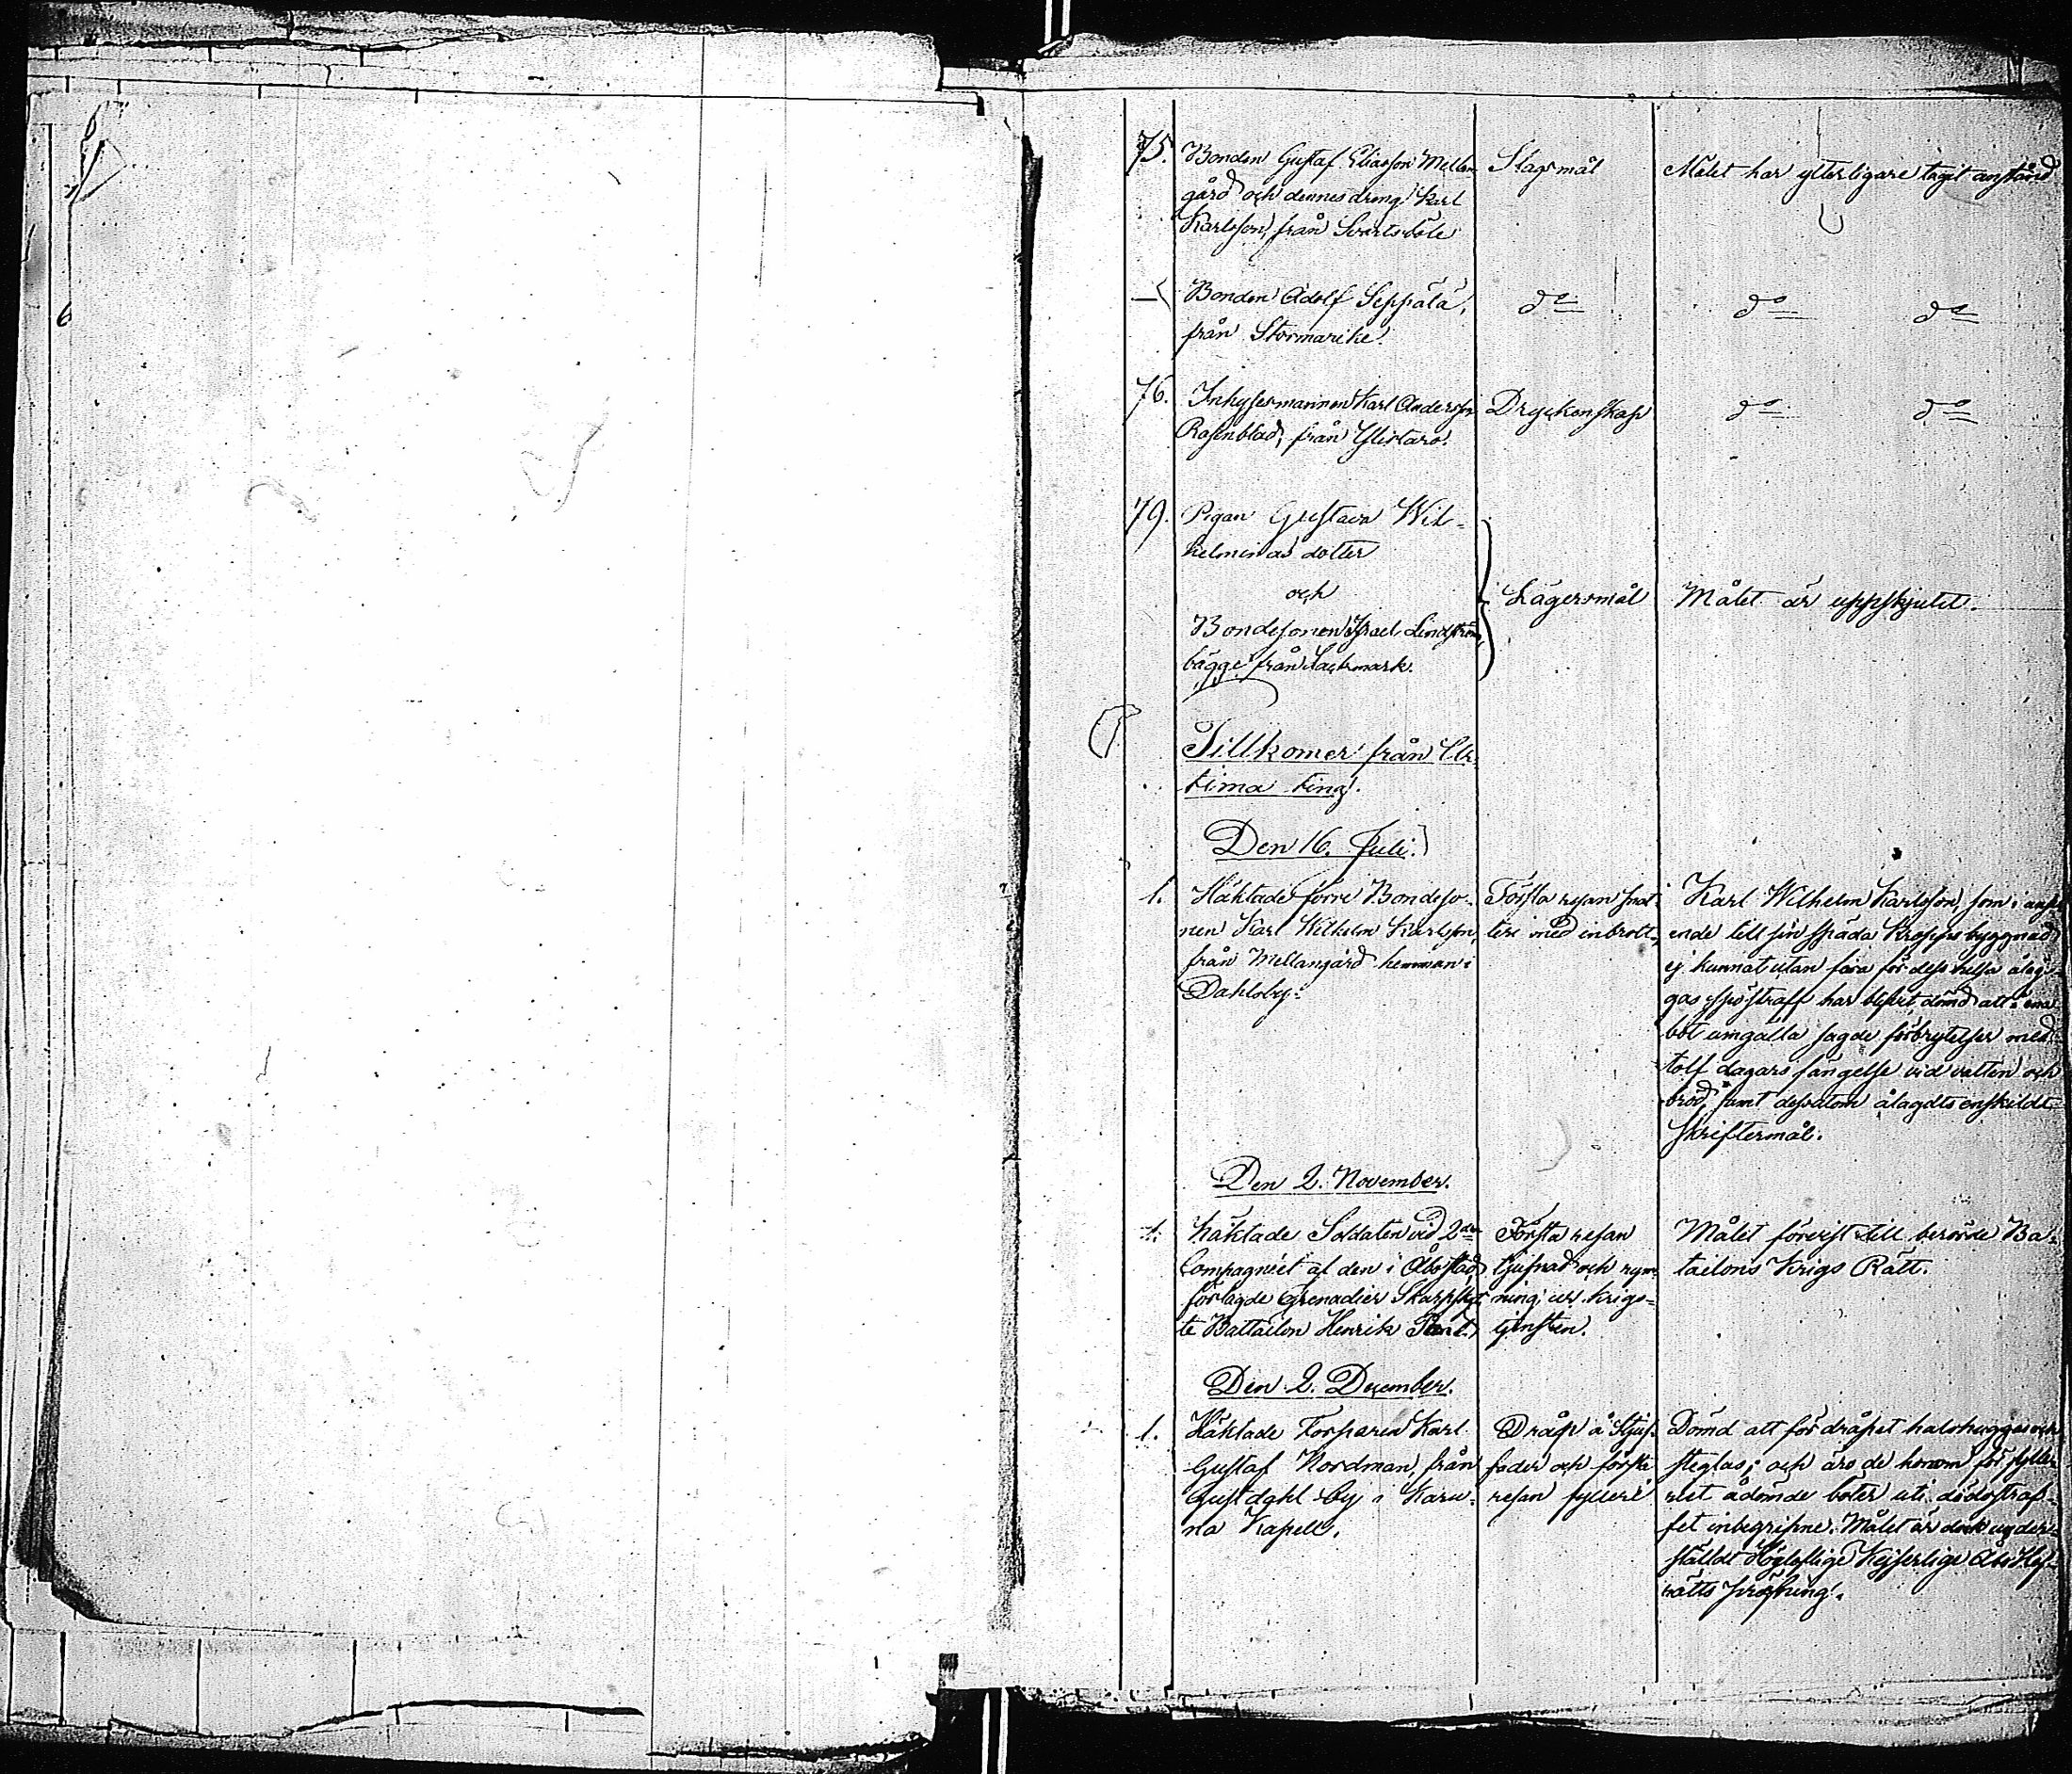 75. Bonden Gustaf Eliasson Mellan-
gård och dennes dreng Karl
Karlsson, från Svartsböle
Slagsmål
Målet har ytterligare tagit anstånd
— Bonden Adolf Seppälä,
från Stormarike.
do
do do
76. Inhysesmannen Karl Andersson
Rosenblad, från Ylistaro.
Dryckenskap
do do
79. Pigan Gustava Wil-
helminas dotter
och
Bondesonen Israel Lindström,
bägge från Lackmark.
Lägersmål
Målet är uppskjutet.
Tillkomer från Ur-
tima ting.
Den 16. Juli.
1. Häktade förre Bondeso-
nen Karl Wilhelm Karlsson,
från Mellangård hemman i
Dahlsby.
Första resan snat-
teri med inbrott,
Karl Wilhelm Karlsson, som i anse-
ende till sin späda kroppsbyggnad
ej kunnat utan fara för dess helsa åläg-
gas spöstraff har blifvit dömd att i ena
bot umgälla sagde förbrytelser med
tolf dagars fängelse vid vatten och
bröd, samt dessutom ålagdts enskildt
skriftermål.
Den 2. November.
1. Häktade Soldaten vid 2dra
Compagniet af den i Åbo stad
förlagde Grenadier Skarpskyt-
te Battailon Henrik
Första resan
tjufnad och rym-
ning ur krigs-
tjensten.
Målet förvist till berörde Ba-
tailons Krigs Rätt.
Den 2. December.
1. Häktade Torparen Karl
Gustaf Nordman, från
Gustdahl by i Karu-
na Kapell.
Dråp å Stjuf-
fader och första
resan fylleri
Dömd att för dråpet halshuggas och
steglas; och äro de honom för fylle-
riet ådömde böter uti dödsstraf-
fet inbegripne. Målet är dock under-
ställdt Högloflige Kejserlige Åbo Hof-
rätts pröfning.